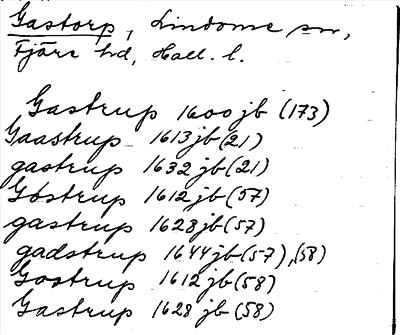 Gastorp, Lindome sn,
Fjäre hd, Hall. l.
Gastrup 1600 jb (173)
Gaastrup 1613 jb (21)
gastrup 1632 jb (21)
Gostrup 1612 jb (57)
gastrup 1628 jb (57)
gadstrup 1644 jb (57), (58)
Gostrup 1612 jb (58)
Gastrup 1628 jb (58)